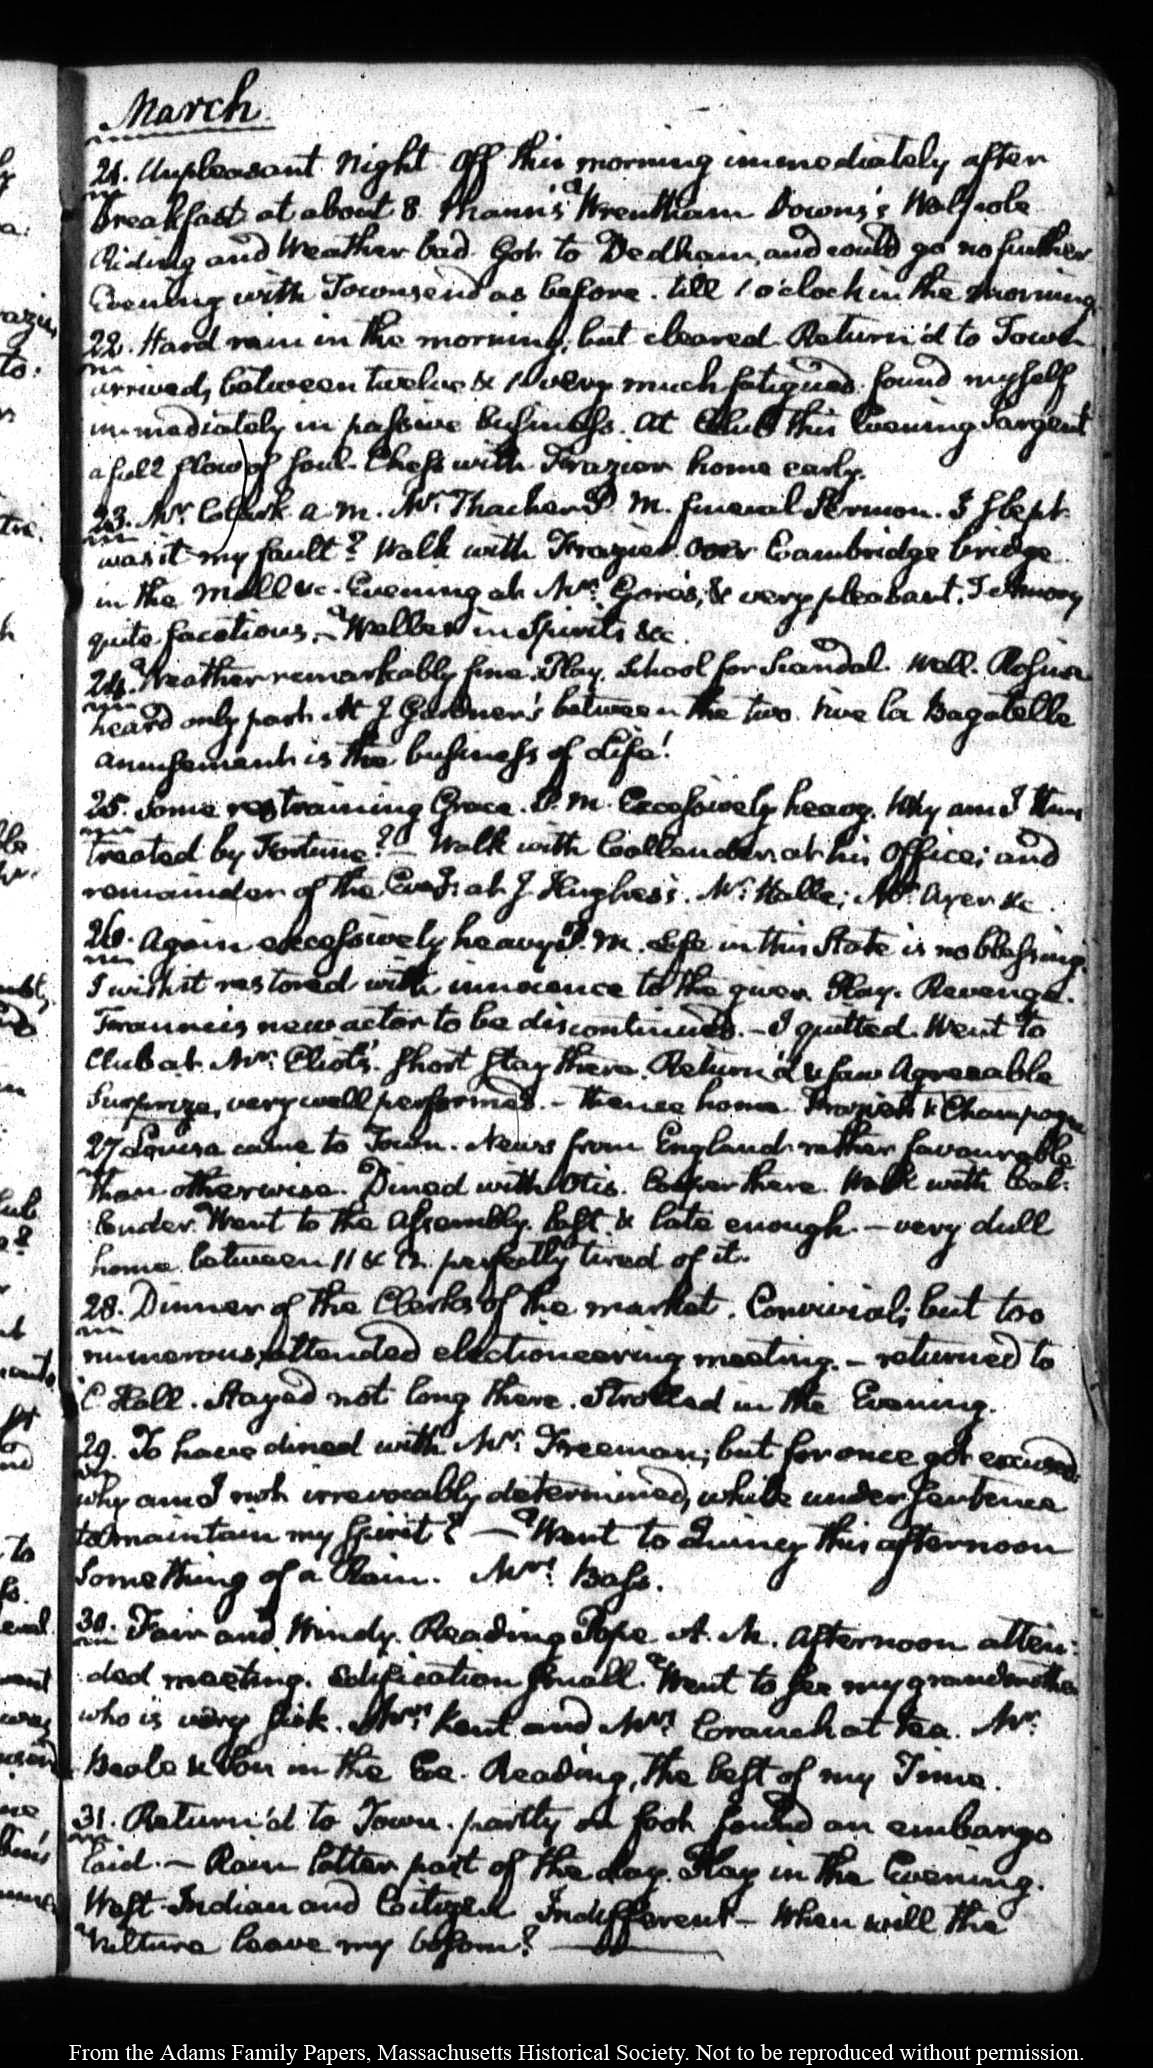 March
21. Unpleasant Night. Off this morning immediately after
breakfast at about 8. Mann's Wrentham Downs's Walpole
Riding and Weather bad. Got to Dedham, and could go no further
Evening with Townsend as before. till 1 o'clock in the morning
22. Hard rain in the morning, but cleared. Return'd to Town
arrived, between twelve & 1. very much fatigued. found myself
immediately in passive business. At Club this Evening Sargent
a full flow of soul. Chess with Frazier home early.
23. Mr. Clark A.M. Mr. Thacher P.M. funeral Sermon. I slept
was it my fault? Walk with Frazier. Over Cambridge bridge
in the Mall &c. Evening at Mrs. Gore's, & very pleasant. T. Amory
quite facetious. Welles in Spirits &c.
24. Weather remarkably fine. Play. School for Scandal. Well. Rosina
heard only part. At J Gardner's between the two. Vive la Bagatelle
amusement is the business of Life!
25. Some restraining Grace. P.M. Excessively heavy. Why am I thus
treated by Fortune? — Walk with Callender. at his Office; and
remainder of the Eveg: at J Hughes's. Mr. Halle; Mr. Ayer &c.
26. Again excessively heavy P.M. Life in this State is no blessing.
I wish it restored with innocence to the giver. Play. Revenge.
new actor to be discontinued. - I quitted. Went to
Club at Mr. Eliot's. Short stay there. Return'd & saw Agreeable
Surprize, very well performed. - thence home. Frazier & Champagne
27 Louisa came to Town. News from England rather favourable
than otherwise. Dined with Otis. Cooper there. Walk with Cal-
lender. Went to the Assembly. last & late enough. - very dull
home between 11 & 12. perfectly tired of it.
28. Dinner of the Clerks of the market. Convivial; but too
numerous attended electioneering meeting. - returned to
C Hall. Stayed not long there. Strolled in the Evening.
29. To have dined with Mr. Freeman; but for once got excused
why am I not irrevocably determined, while under sentence
to maintain my spirit? — Went to Quincy this afternoon
Something of a Rain. Mrs. Bass.
30. Fair and Windy. Reading Pope A.M. Afternoon atten-
ded meeting. Edification small. Went to see my grandmother
who is very sick. Mrs. Kent and Mrs. Cranch at tea. Mr.
Beale & Son in the Eve. Reading, the best of my Time.
31. Return'd to Town. partly on foot found an embargo
laid. - Rain latter part of the day. Play in the Evening.
West-Indian and Citizen Indifferent - When will the
Vulture leave my bosom? —
From the Adams Family Papers, Massachusetts Historical Society. Not to be reproduced without permission.